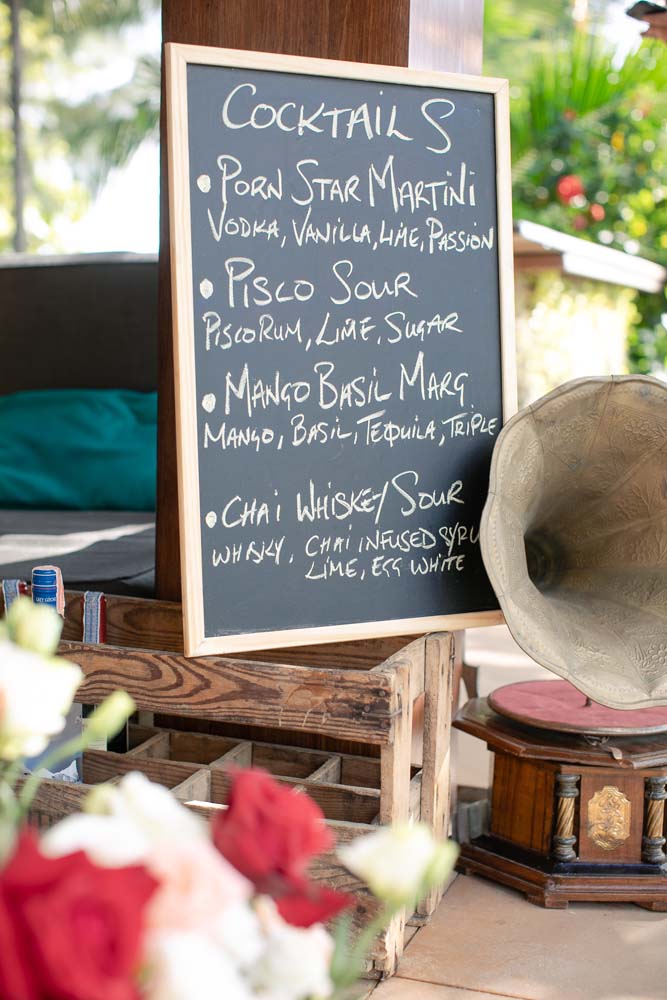 COCKTAILS
• PORN STAR MARTINI
VODKA, VANILLA, LIME, PASSION
• PISCO SOUR
PISCO RUM, LIME, SUGAR
• MANGO BASIL MARG
MANGO, BASIL, TEQUILA, TRIPLE
• CHAI WHISKEY SOUR
WHISKY, CHAI INFUSED SYRU
LIME, EGG WHITE